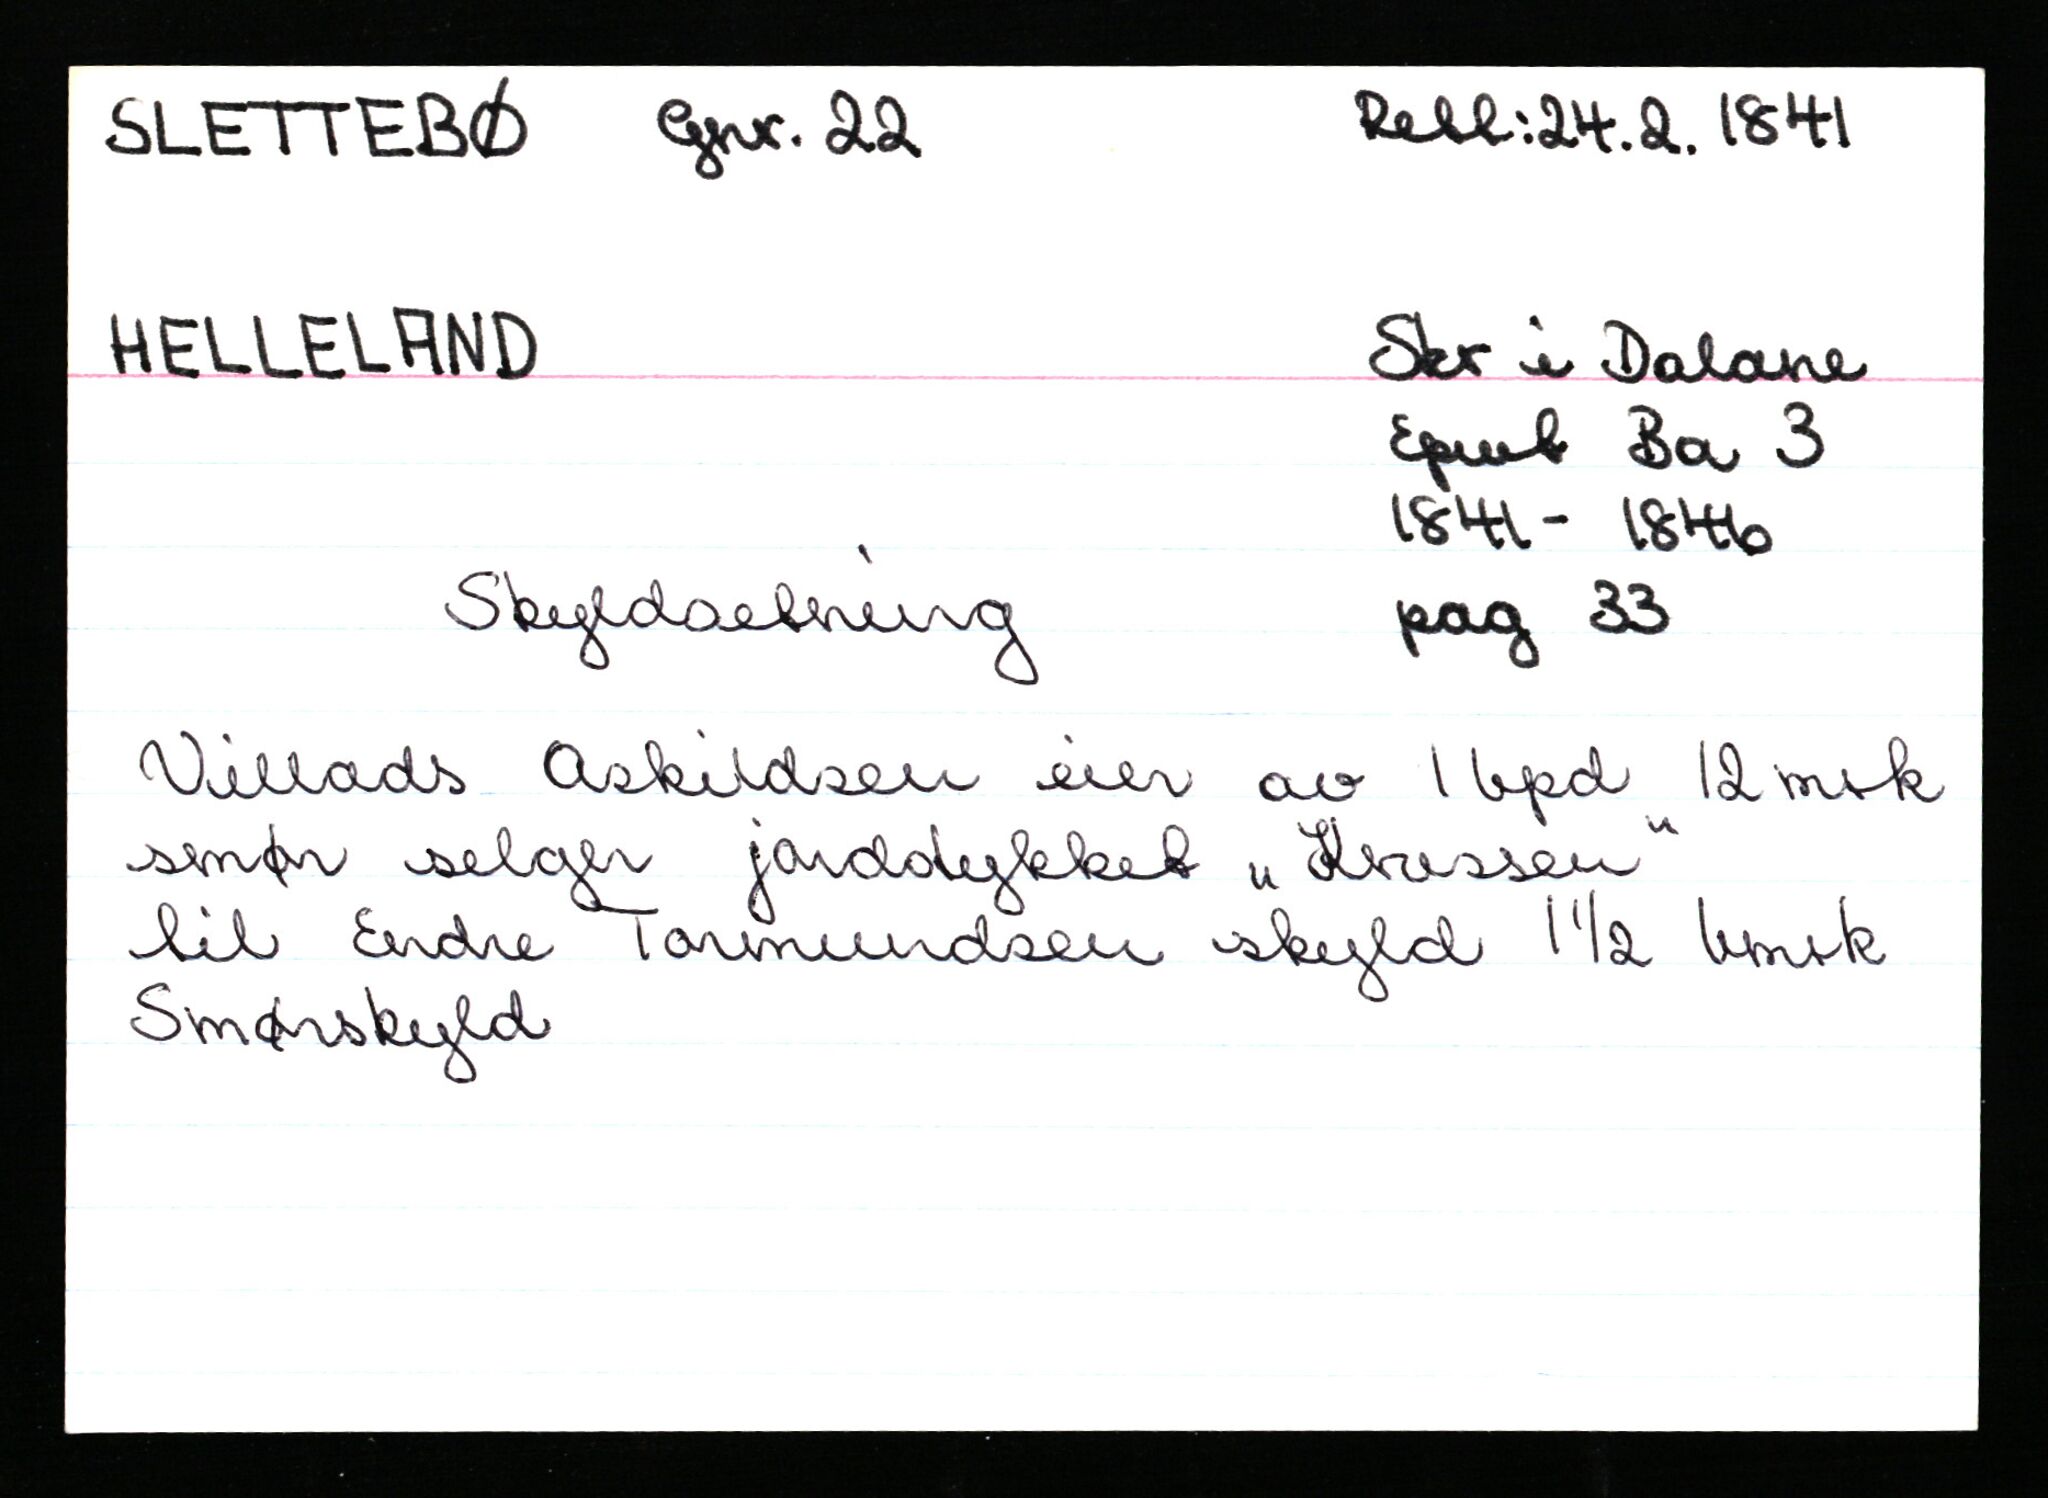 SLETTEBØ Gnr. 22 Rett: 24.2. 1841
HELLELAND Skr i Dalane
Epwt Ba 3
1841 - 1846
pag 33
Skyldsetning
Villads Askildsen eier av 1 bpd 12 mrk
smør selger jorddykket „Krossen"
til Endre Tormundsen skyld 1 1/2 bmrk
Smørskyld